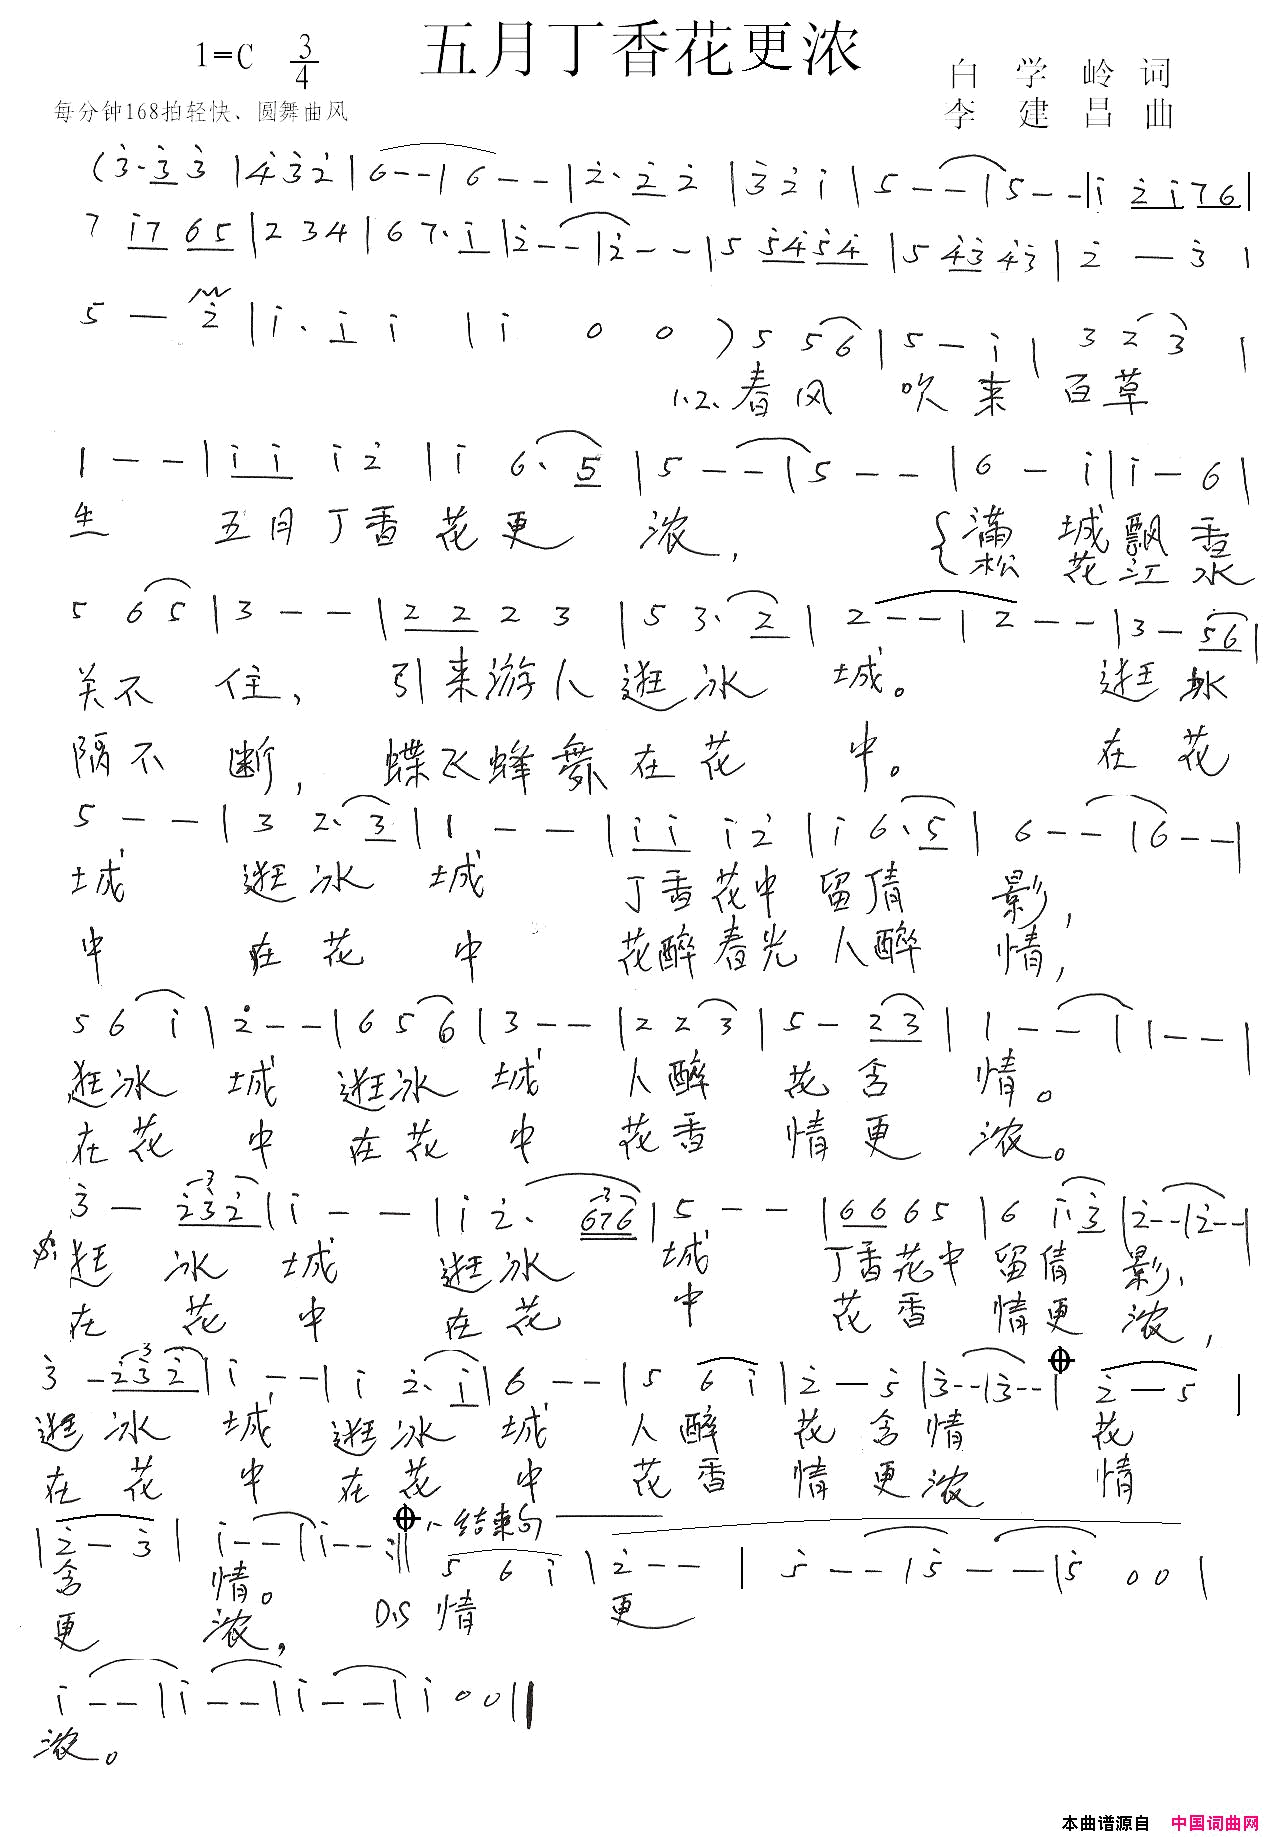 五月丁香花更浓
1=C 3/4
白学岭 词
每分钟168拍轻快、圆舞曲风
李建昌 曲
(3̇· 3̇ 3̇ | 4̇ 3̇ 2̇ | 6 - - | 6 - - | 2̇· 2̇ 2̇ | 3̇ 2̇ i | 5 - - | 5 - - | i 2̇ i 7 6 |
7 i 7 6 5 | 2 3 4 | 6 7· i | 2̇ - - | 2̇ - - | 5 5̇ 4̇ 5̇ 4̇ | 5 4̇ 3̇ 4̇ 3̇ | 2̇ - 3̇ |
5 - 2̇ | i· i i | i 0 0 ) 5 5 6 | 5 - i | 3 2 3 |
1.2.春风 吹来 百草
1 - - | i i i 2̇ | i 6· 5 | 5 - - | 5 - - | 6 - i | i - 6 |
生 五月丁香花更 浓, {满 城飘香
松 花江水
5 6 5 | 3 - - | 2 2 2 3 | 5 3· 2 | 2 - - | 2 - - | 3 - 5 6 |
关不 住, 引来游人逛冰 城。 逛冰
隔不 断, 蝶飞蜂舞在花 中。 在花
5 - - | 3 2· 3 | 1 - - | i i i 2̇ | i 6· 5 | 6 - - | 6 - - |
城 逛冰 城 丁香花中留倩 影,
中 在花 中 花醉春光人醉 情,
5 6 i | 2̇ - - | 6 5 6 | 3 - - | 2 2 3 | 5 - 2 3 | 1 - - | 1 - - |
逛冰 城 逛冰 城 人醉 花含 情。
在花 中 在花 中 花香 情更 浓。
3̇ - 2̇ 3̇ 2̇ | i - - | i 2̇· 6 7 6 | 5 - - | 6 6 6 5 | 6 i· 3̇ | 2̇ - - | 2̇ - - |
逛 冰 城 逛冰 城 丁香花中留倩 影,
在 花 中 在花 中 花香 情更 浓,
3̇ - 2̇ 3̇ 2̇ | i - - | i 2̇· i | 6 - - | 5 6 i | 2̇ - 5̇ | 3̇ - - | 3̇ - - | 2̇ - 5 |
逛冰 城 逛冰 城 人醉 花含情 花
在花 中 在花 中 花香 情更浓 情
结束句
| 2̇ - 3̇ | i - - | i - - :‖ 5 6 i | 2̇ - - | 5̇ - - | 5̇ - - | 5̇ 0 0 |
含 情。
更 浓, D.S 情 更
i - - | i - - | i - - | i 0 0 ‖
浓。
本曲谱源自 中国词曲网